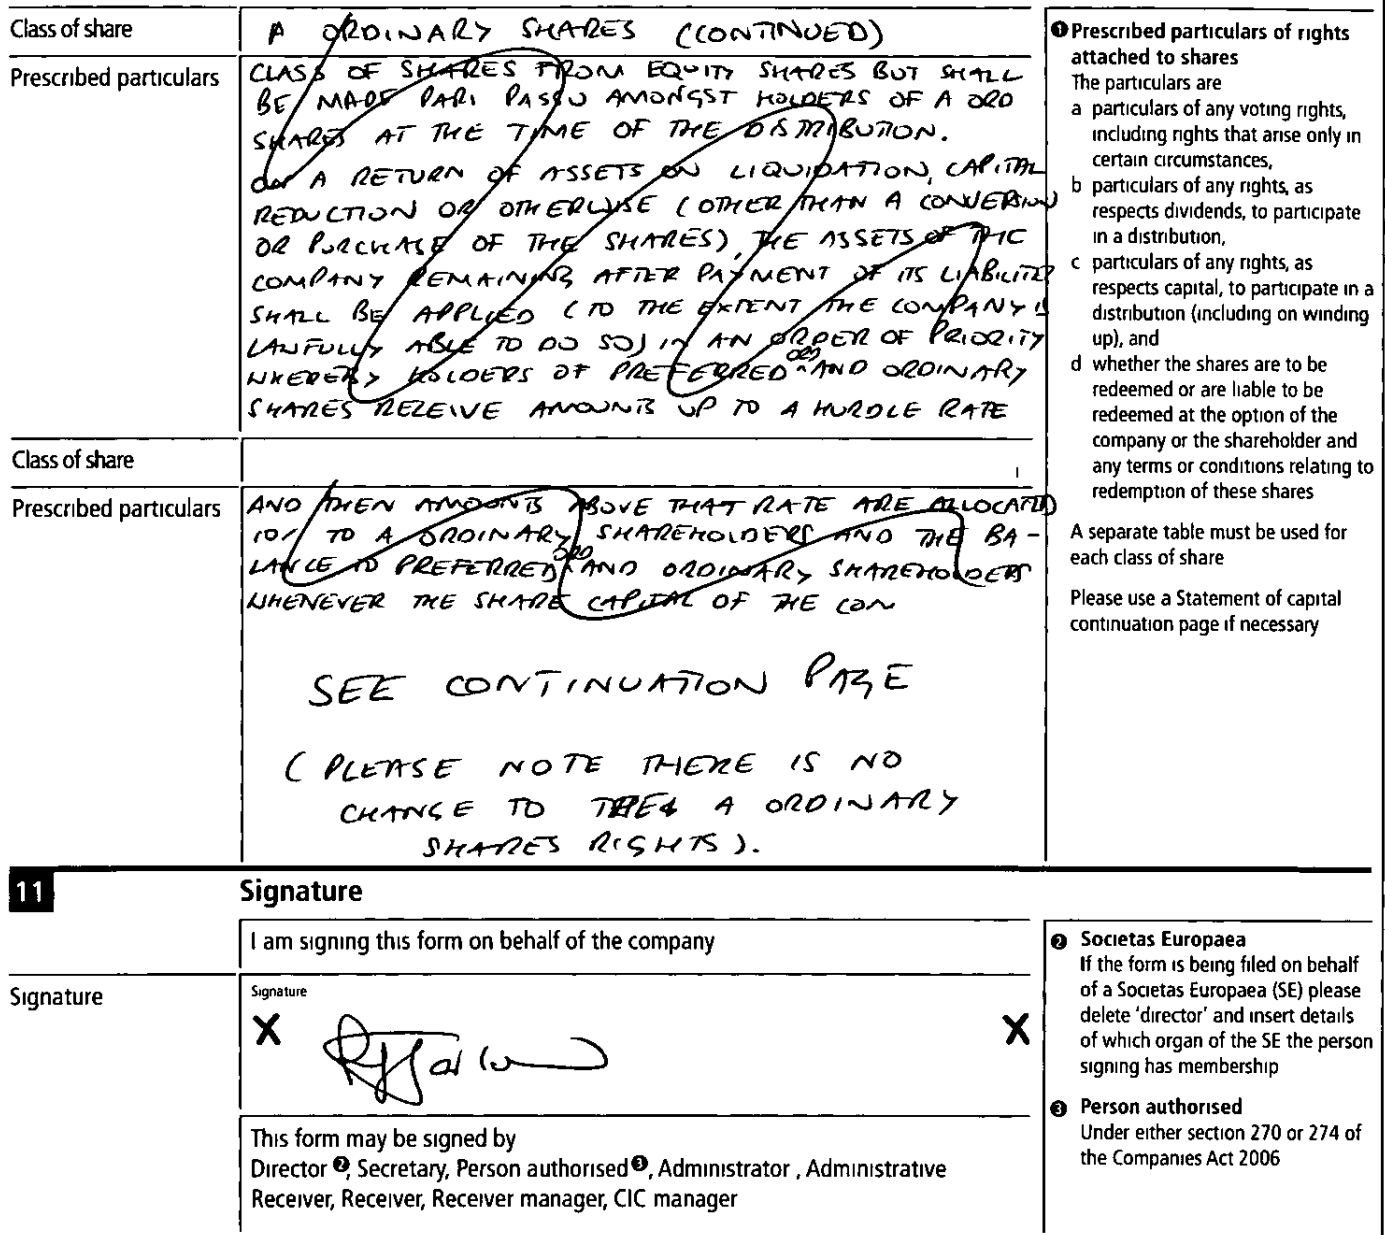 Class of share
A ORDINARY SHARES (CONTINUED)
Prescribed particulars
CLASS OF SHARES FROM EQUITY SHARES BUT SHALL
BE MADE PARI PASSU AMONGST HOLDERS OF A ORD
SHARES AT THE TIME OF THE DISTRIBUTION.
ON A RETURN OF ASSETS ON LIQUIDATION, CAPITAL
REDUCTION OR OTHERWISE (OTHER THAN A CONVERSION
OR PURCHASE OF THE SHARES), THE ASSETS OF THE
COMPANY REMAINING AFTER PAYMENT OF ITS LIABILITIES
SHALL BE APPLIED (TO THE EXTENT THE COMPANY IS
LAWFULLY ABLE TO DO SO) IN AN ORDER OF PRIORITY
WHEREBY HOLDERS OF PREFERRED ORD AND ORDINARY
SHARES RECEIVE AMOUNTS UP TO A HURDLE RATE
Class of share
Prescribed particulars
AND THEN AMOUNTS ABOVE THAT RATE ARE ALLOCATED
10% TO A ORDINARY SHAREHOLDERS AND THE BA-
LANCE TO PREFERRED ORD AND ORDINARY SHAREHOLDERS
WHENEVER THE SHARE CAPITAL OF THE COM
SEE CONTINUATION PAGE
(PLEASE NOTE THERE IS NO
CHANGE TO THE A ORDINARY
SHARES RIGHTS).
❶ Prescribed particulars of rights
attached to shares
The particulars are
a particulars of any voting rights,
including rights that arise only in
certain circumstances,
b particulars of any rights, as
respects dividends, to participate
in a distribution,
c particulars of any rights, as
respects capital, to participate in a
distribution (including on winding
up), and
d whether the shares are to be
redeemed or are liable to be
redeemed at the option of the
company or the shareholder and
any terms or conditions relating to
redemption of these shares
A separate table must be used for
each class of share
Please use a Statement of capital
continuation page if necessary
11 Signature
I am signing this form on behalf of the company
Signature
Signature
X X
This form may be signed by
Director ❷, Secretary, Person authorised ❸, Administrator , Administrative
Receiver, Receiver, Receiver manager, CIC manager
❷ Societas Europaea
If the form is being filed on behalf
of a Societas Europaea (SE) please
delete 'director' and insert details
of which organ of the SE the person
signing has membership
❸ Person authorised
Under either section 270 or 274 of
the Companies Act 2006